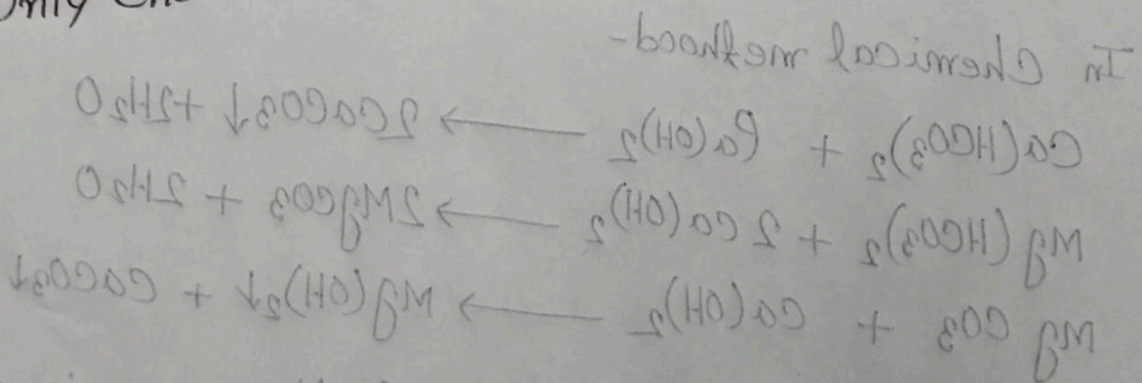 Only
In Chemical methood-
Ca(HCO3)2 + Ca(OH)2 → 2CaCO3↓ + 2H2O
Mg(HCO3)2 + 2Ca(OH)2 → 2MgCO3 + 2H2O
MgCO3 + Ca(OH)2 → Mg(OH)2↓ + CaCO3↓